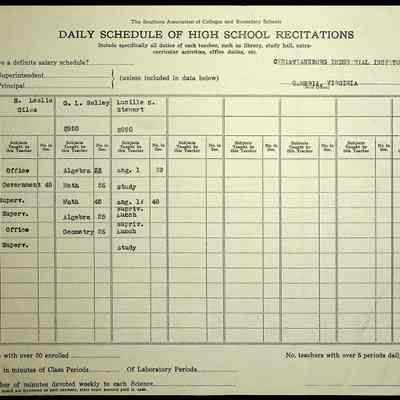 The Southern Association of Colleges and Secondary Schools
DAILY SCHEDULE OF HIGH SCHOOL RECITATIONS
Include specifically all duties of each teacher, such as library, study hall, extra-
curricular activities, office duties, etc.
a definite salary schedule? CHRISTIANSBURG INDUSTRIAL INSTITU
Superintendent (unless included in data below) CAMBRIA, VIRGINIA
Principal
Leslie G. L. Lucille
Giles Stewart
Subjects Taught by this Teacher No. in Sec. Subjects Taught by this Teacher No. in Sec. Subjects Taught by this Teacher No. in Sec. Subjects Taught by this Teacher No. in Sec. Subjects Taught by this Teacher No. in Sec. Subjects Taught by this Teacher No. in Sec. Subjects Taught by this Teacher No. in Sec.
Office Algebra Eng. 1
Government 48 Math Study
Superv. Math 48 Eng. 48
Superv. Algebra 25 Supriv. Lunch
Office Geometry 25 Supriv. Lunch
Superv. Study
with over 30 enrolled No. teachers with over 5 periods daily
in minutes of Class Periods Of Laboratory Periods
ber of minutes devoted weekly to each Science